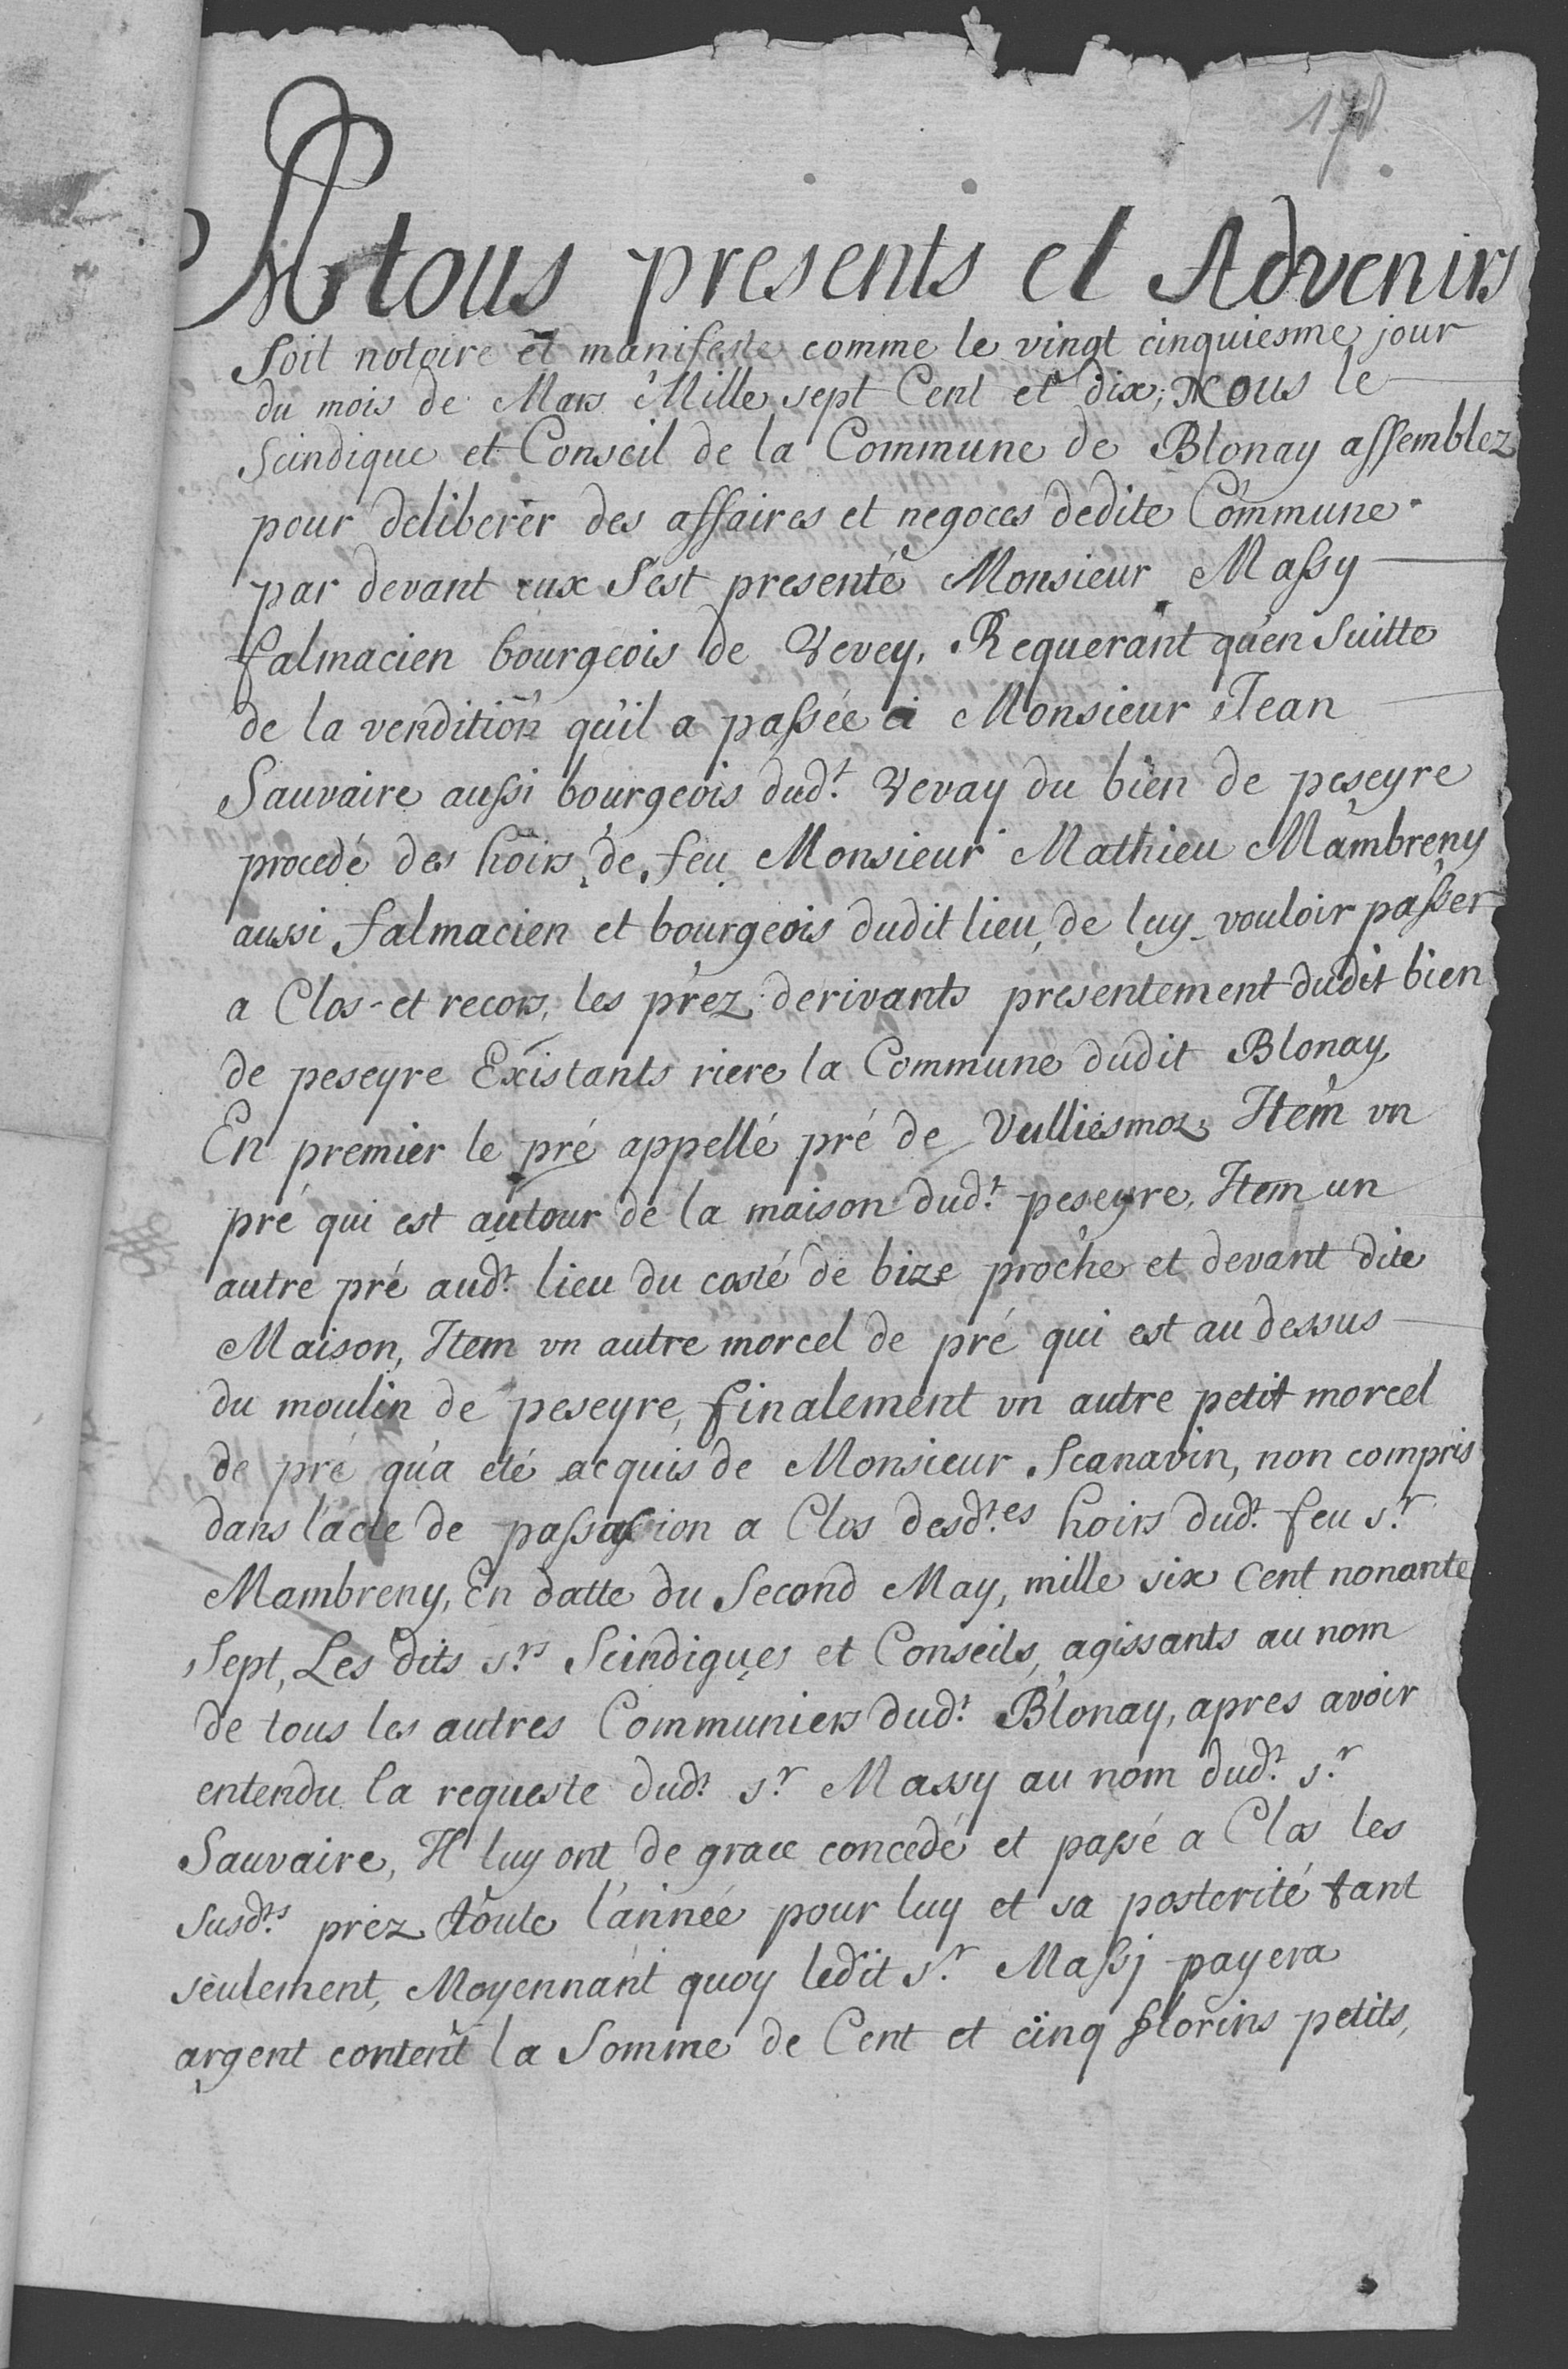 178
A tous presents et Advenirs
Soit notoire et manifeste comme le vingt cinquiesme jour
du mois de Mars Mille sept Cent et dix; Nous le
Scindique et Conseil de la Commune de Blonay assemblez
pour deliberer des affaires et negoces dedite Commune
par devant eux s'est presenté Monsieur Massy
falmacien bourgeois de Vevey, Requerant qu'en Suitte
de la vendition qu'il a passée a Monsieur Jean
Sauvaire aussi bourgeois dud.t Vevay du bien de peseyre
procedé des hoirs de feu Monsieur Mathieu Mambreny
aussi falmacien et bourgeois dudit lieu, de luy vouloir passer
a Clos et recors, les prez derivants presentement dudit bien
de peseyre Existants riere la Commune dudit Blonay
En premier le pré appellé pré de Vulliesmoz, Item vn
pré qui est autour de la maison dud.t peseyre, Item un
autre pré aud.t lieu du costé de bize proche et devant dite
Maison, Item vn autre morcel de pré qui est au dessus
du moulin de peseyre, finalement vn autre petit morcel
de pré qu'a eté acquis de Monsieur Scanavin, non compris
dans l'acte de passation a Clos desd.tes hoirs dud.t feu s.r
Mambreny, En datte du Second May, mille six Cent nonante
Sept, Les dits s.rs Scindiques et Conseils, agissants au nom
de tous les autres Communiers dud.t Blonay, apres avoir
entendu la requeste dud.t s.r Massy au nom dud.t s.r
Sauvaire, Il luy ont de grace concedé et passé a Clos les
susd.ts prez toute l'année pour luy et sa posterité tant
seulement, Moyennant quoy ledit s.r Massj payera
argent content la Somme de Cent et cinq florins petits,